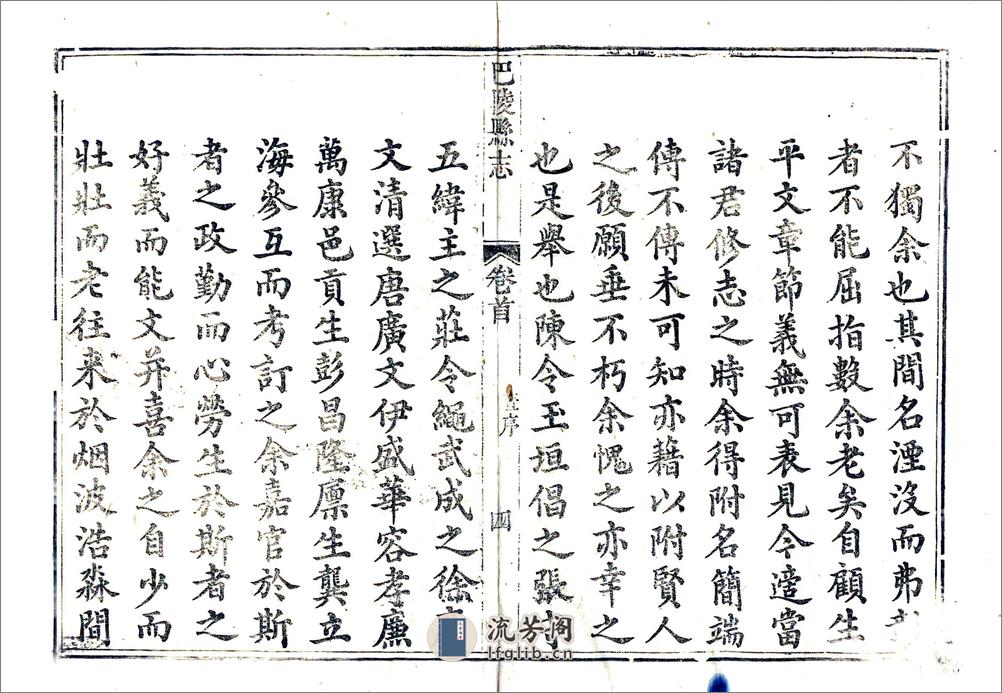 不獨余也其間名湮沒而弗
者不能屈指數余老矣自顧生
平文章節義無可表見今適當
諸君修志之時余得附名簡端
傳不傳未可知亦藉以附賢人
之後願垂不朽余愧之亦幸之
也是舉也陳令玉垣倡之張守
巴陵縣志
卷首
序
四
五緯主之莊令繩武成之徐
文清選唐廣文伊盛華容孝廉
萬康邑貢生彭昌隆廩生龔立
海參互而考訂之余嘉官於斯
者之政勤而心勞生於斯者之
好義而能文并喜余之自少而
壯壯而老往來於烟波浩淼間
流芳阁
lfglib.cn